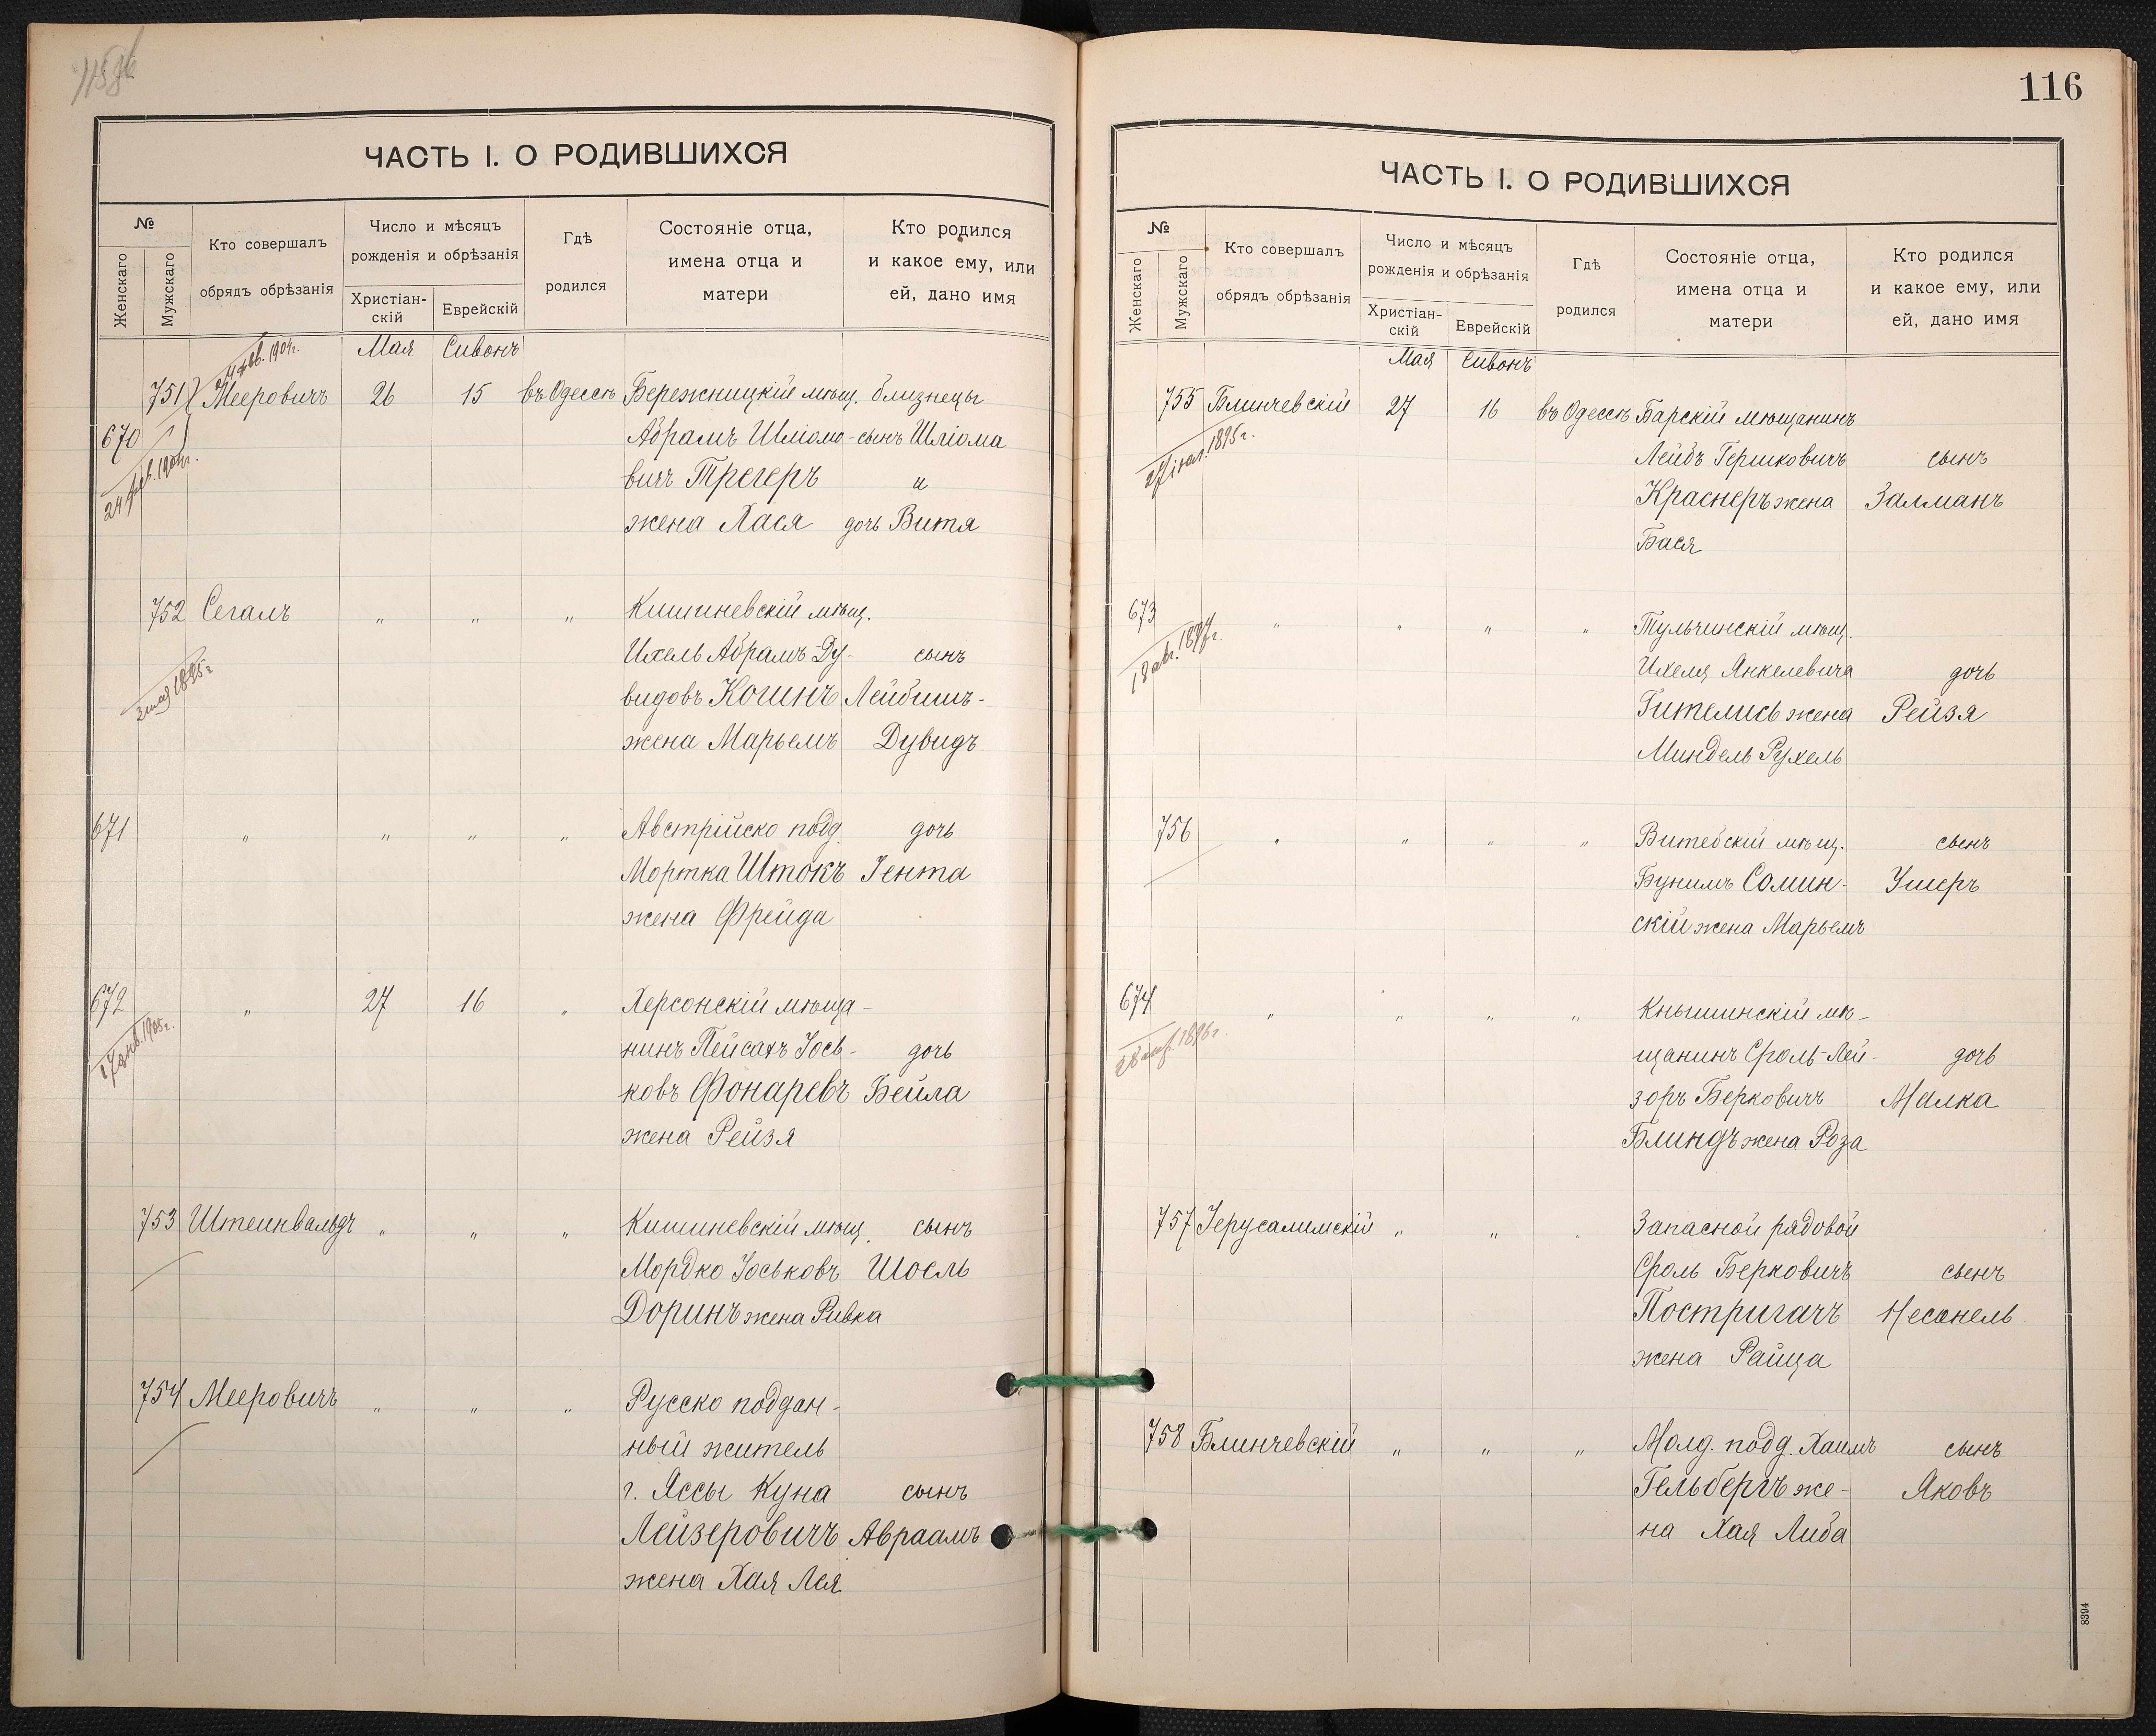 ЧАСТЬ I. О РОДИВШИХСЯ
№
Женскаго
Мужскаго
Кто совершалъ
обрядъ обрѣзанія
Число и мѣсяцъ
рожденія и обрѣзанія
Христіан-
скій
Еврейскій
Гдѣ
родился
Состояніе отца,
имена отца и
матери
Кто родился
и какое ему, или
ей, дано имя
Мая Сивонъ
751 Мееровичъ 26 15 въ Одессѣ Бережницкій мѣщ. близнецы
670 Абрамъ Шліомо- сынъ Шліома
вичъ Трегеръ и
жена Хася дочь Витя
752 Сегалъ " " " Кишиневскій мѣщ.
Ихель Абрамъ Ду- сынъ
видовъ Когинъ Лейбишъ-
жена Марьемъ Дувидъ
3 мая 1895г
671 " " " " Австрійско подд. дочь
Мортка Штокъ Іента
жена Фрейда
672 " 27 16 " Херсонскій мѣща-
нинъ Пейсахъ Іось- дочь
ковъ Фонаревъ Бейла
жена Рейзя
753 Штеинвальдъ " " " Кишиневскій мѣщ. сынъ
Мордко Іоськовъ Шоель
Доринъ жена Ривка
754 Мееровичъ " " " Русско поддан-
ный житель
г. Яссы Куна сынъ
Лейзеровичъ Авраамъ
жена Хая Лея
116
ЧАСТЬ I. О РОДИВШИХСЯ
№
Женскаго
Мужскаго
Кто совершалъ
обрядъ обрѣзанія
Число и мѣсяцъ
рожденія и обрѣзанія
Христіан-
скій
Еврейскій
Гдѣ
родился
Состояніе отца,
имена отца и
матери
Кто родился
и какое ему, или
ей, дано имя
Мая Сивонъ
755 Блинчевскій 27 16 въ Одессѣ Барскій мѣщанинъ
Лейбъ Гершковичъ сынъ
Краснеръ жена Залманъ
Бася
673 " " " " Тульчинскій мѣщ.
18 авг. 1897г.
Ихеля Янкелевича дочь
Гителись жена Рейзя
Миндель Рухель
756 " " " " Витебскій мѣщ. сынъ
Бунимъ Сомин- Ушеръ
скій жена Марьемъ
674 " " " " Кнышинскій мѣ-
щанинъ Сроль-Лей- дочь
зоръ Берковичъ Малка
Блиндъ жена Роза
757 Іерусалимскій " " " Запасной рядовой
Сроль Берковичъ сынъ
Постригачъ Несанель
жена Райца
758 Блинчевскій " " " Молд. подд. Хаимъ сынъ
Гельбергъ же- Яковъ
на Хая Либа
8394